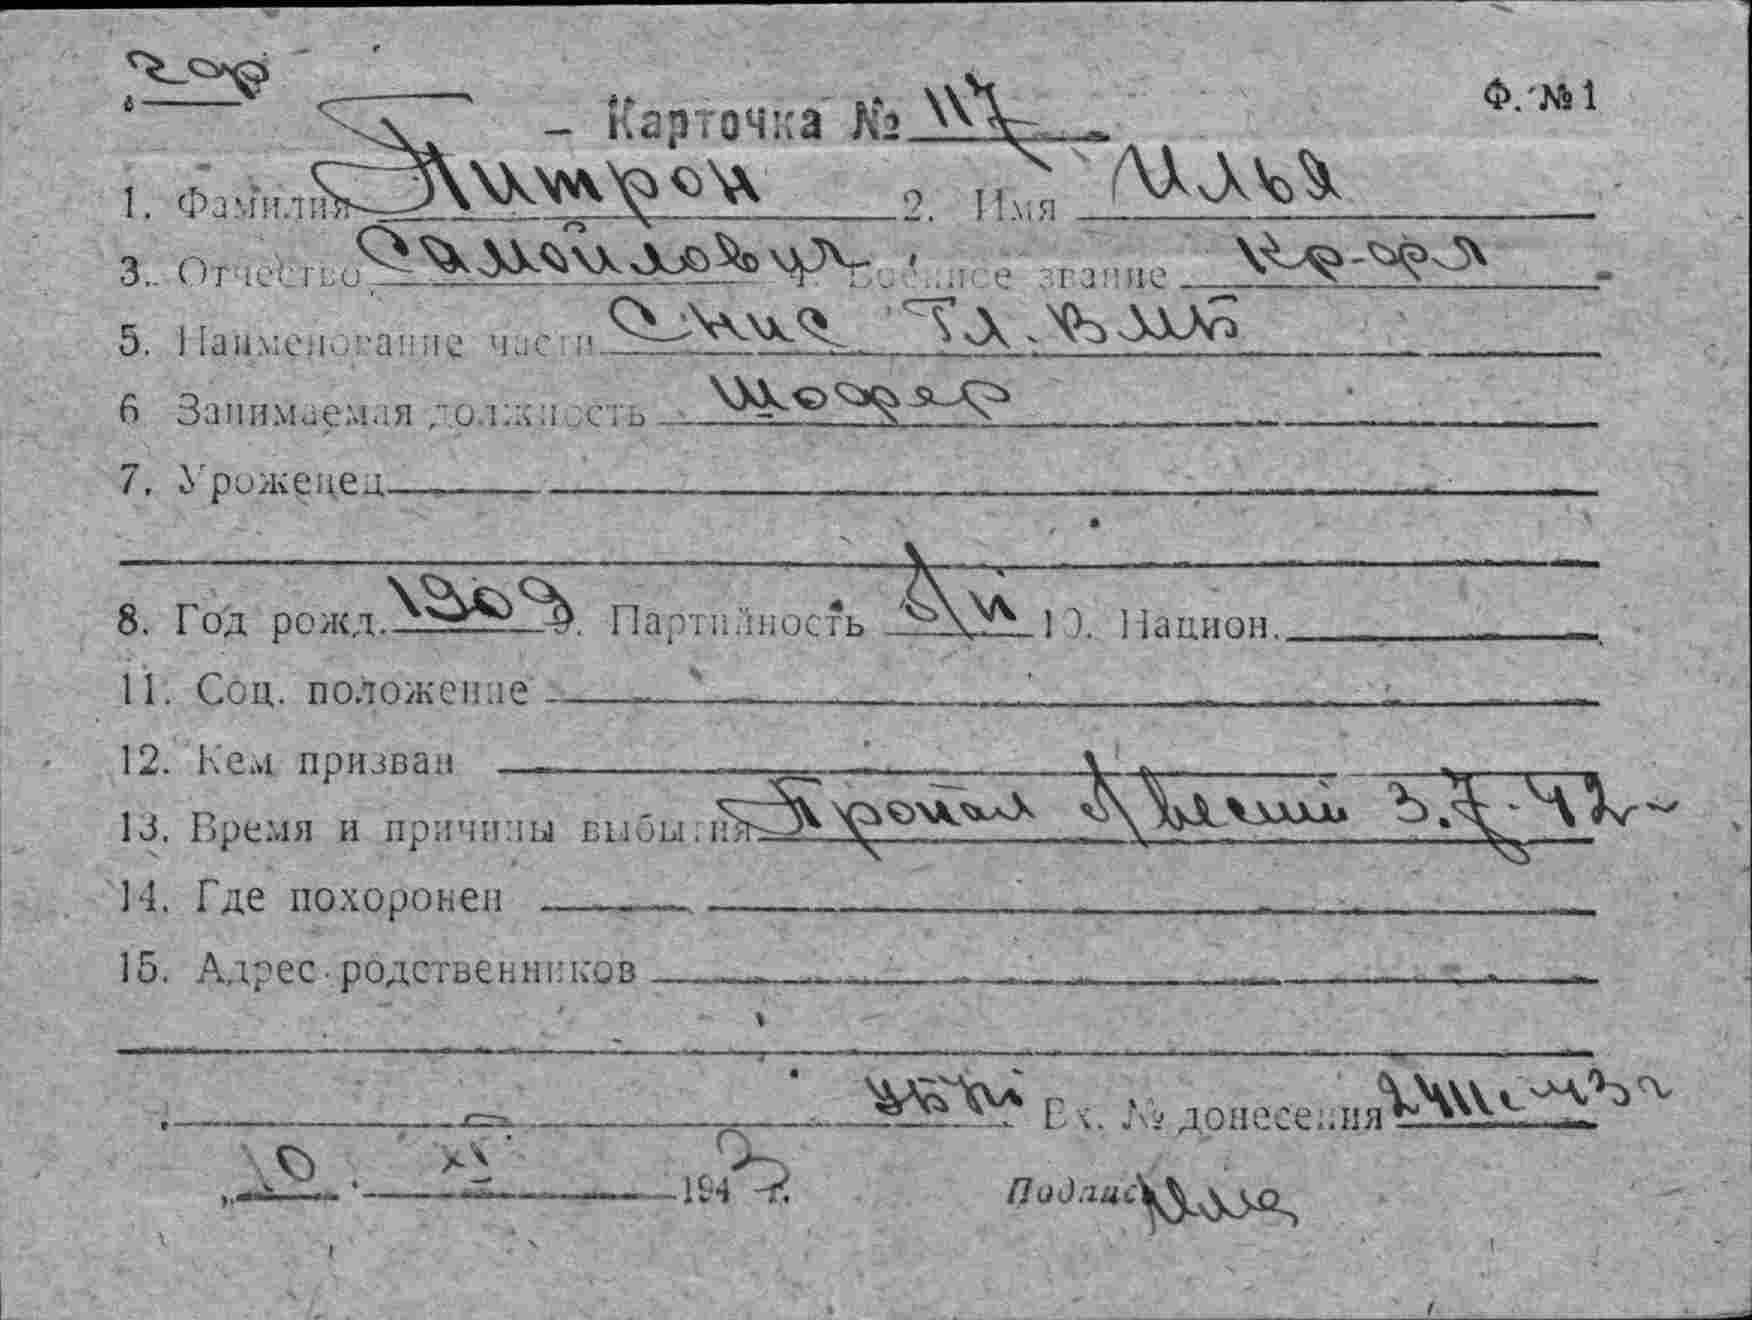 Ф. №1
Карточка № 117
1. Фамилия Питрон 2. Имя Илья
3. Отчество Самойлович 4. Военное звание Кр-фл
5. Наименование части Снис Гл. ВМБ
6 Занимаемая должность Шофер
7. Уроженец
8. Год рожд. 1909 9. Партийность б/п 10. Национ.
11. Соц. положение
12. Кем призван
13. Время и причины выбытия Пропал б/вести 3.7.42 г
14. Где похоронен
15. Адрес родственников
Вх. № донесения
10 XI 1943 г.
Подпись